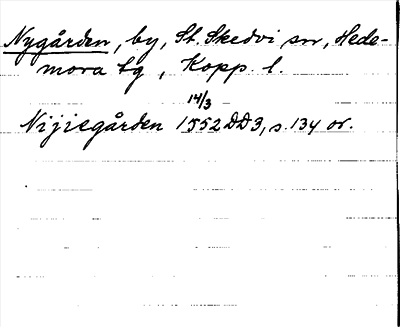 Nygården, by, St. Skedvi sn, Hede-
mora tg, Kopp. l.
14/3
Nijiegården 1552 DD3, s. 134 or.